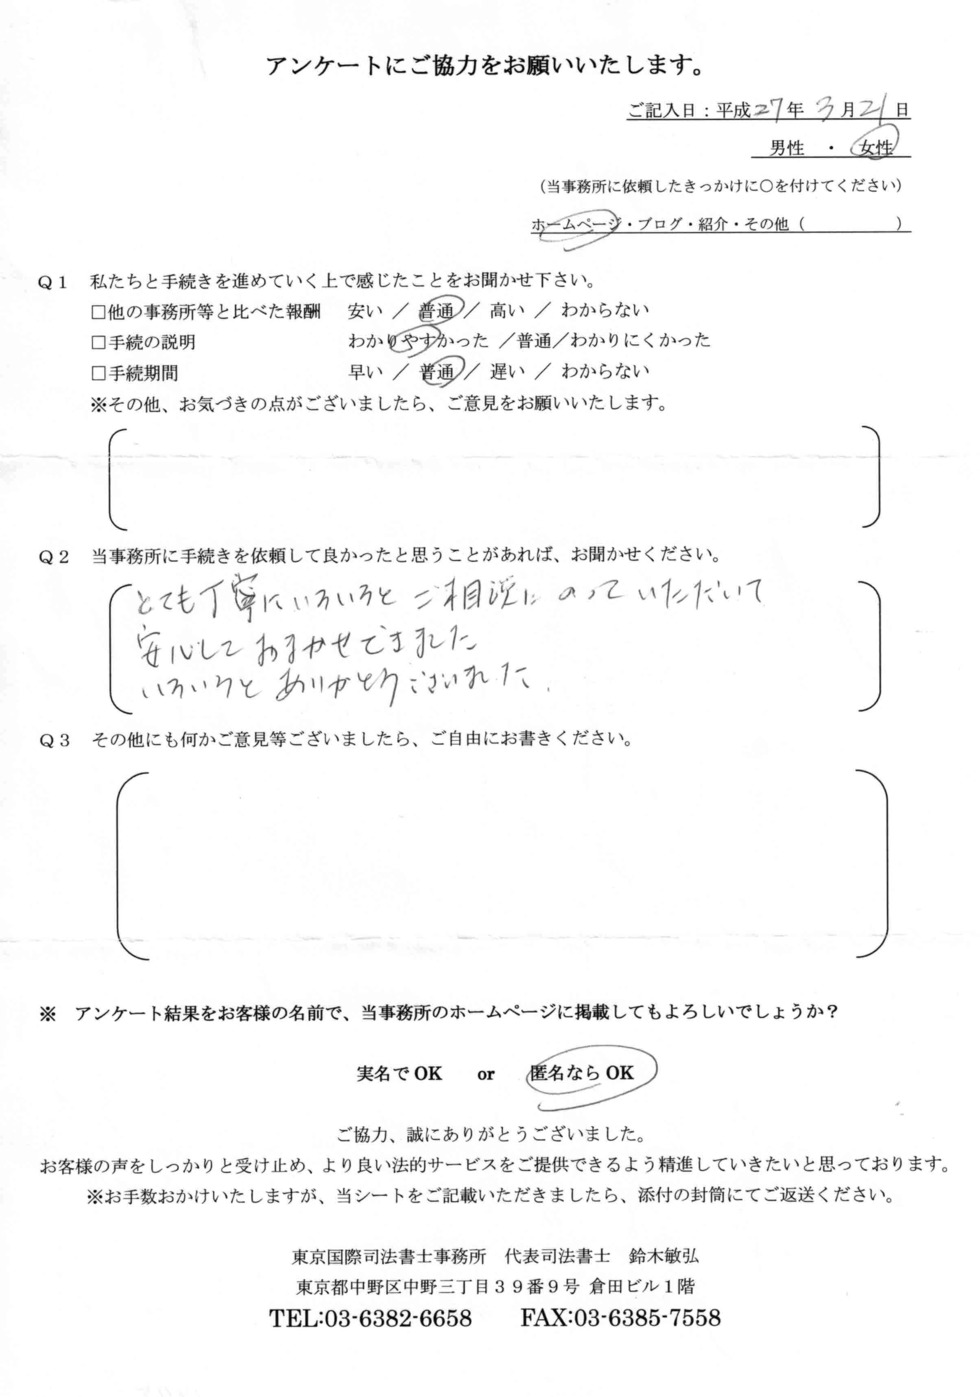 アンケートにご協力をお願いいたします。
ご記入日：平成27年 3月21日
男性 ・ 女性
（当事務所に依頼したきっかけに○を付けてください）
ホームページ・ブログ・紹介・その他（　　　　　）
Ｑ１　私たちと手続きを進めていく上で感じたことをお聞かせ下さい。
□他の事務所等と比べた報酬　安い ／ 普通 ／ 高い ／ わからない
□手続の説明　わかりやすかった ／普通／わかりにくかった
□手続期間　早い ／ 普通 ／ 遅い ／ わからない
※その他、お気づきの点がございましたら、ご意見をお願いいたします。
Ｑ２　当事務所に手続きを依頼して良かったと思うことがあれば、お聞かせください。
とても丁寧にいろいろと ご相談に のって いただいて
安心して おまかせできました
いろいろと ありがとうございました.
Ｑ３　その他にも何かご意見等ございましたら、ご自由にお書きください。
※　アンケート結果をお客様の名前で、当事務所のホームページに掲載してもよろしいでしょうか？
実名で OK　or　匿名なら OK
ご協力、誠にありがとうございました。
お客様の声をしっかりと受け止め、より良い法的サービスをご提供できるよう精進していきたいと思っております。
※お手数おかけいたしますが、当シートをご記載いただきましたら、添付の封筒にてご返送ください。
東京国際司法書士事務所　代表司法書士　鈴木敏弘
東京都中野区中野三丁目３９番９号 倉田ビル１階
TEL:03-6382-6658　FAX:03-6385-7558